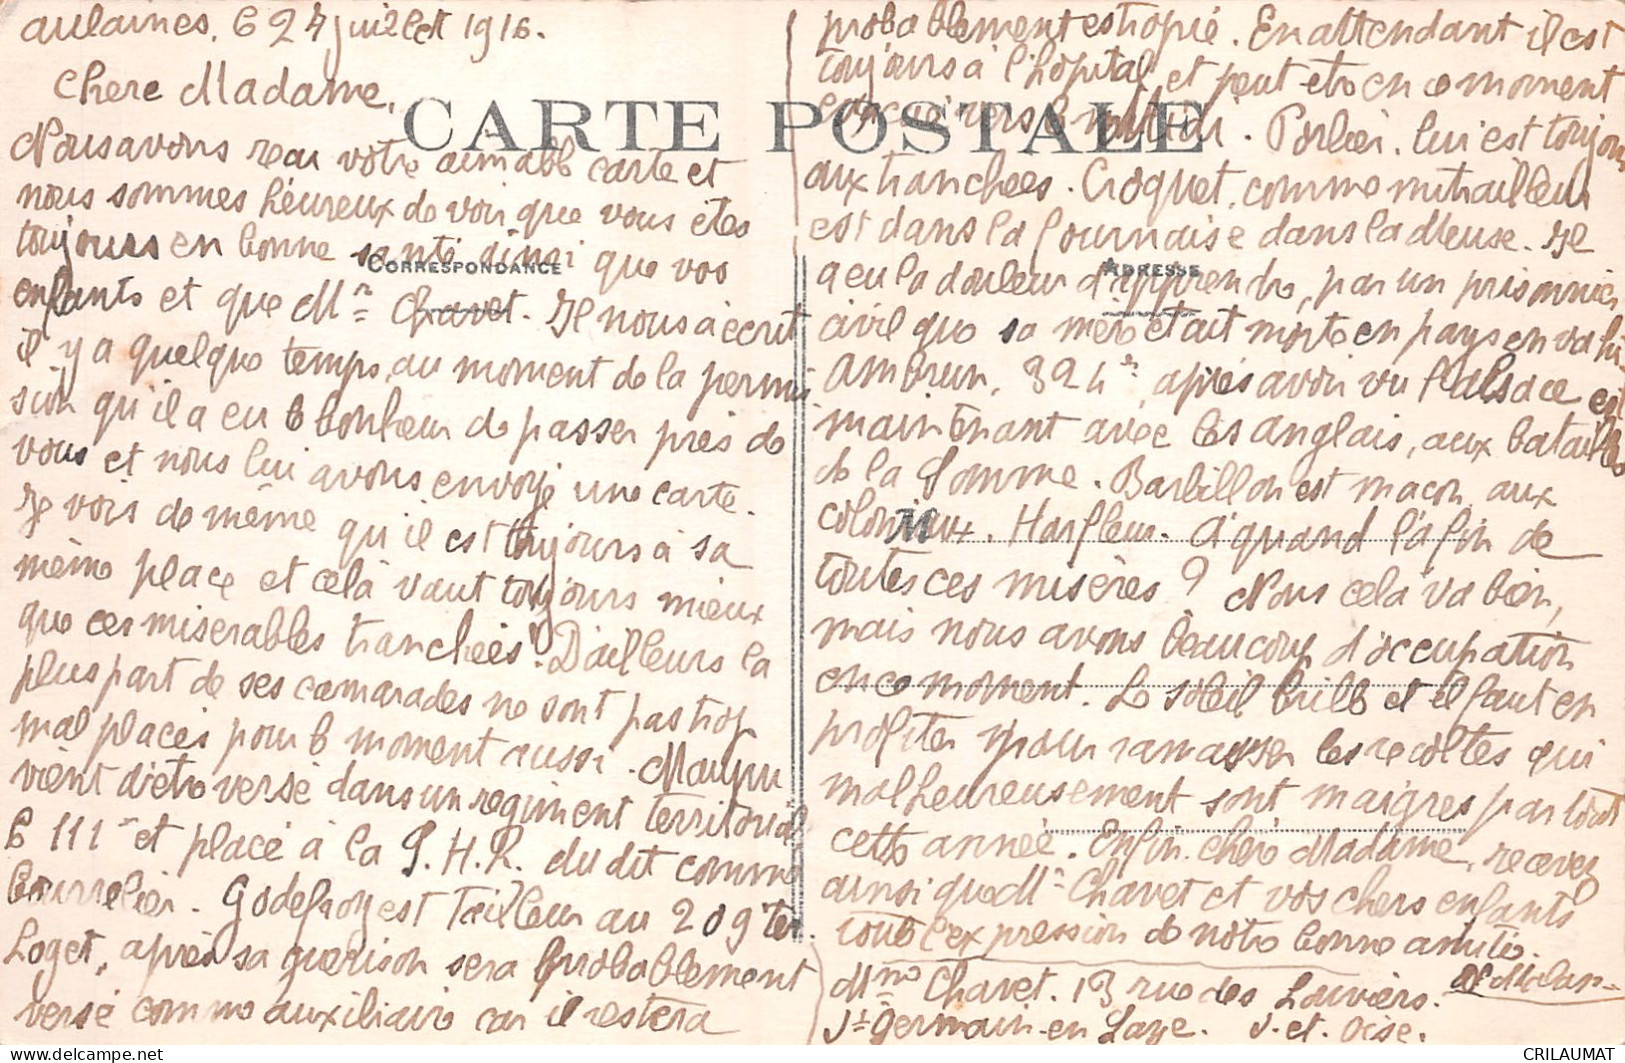 aulaines, le 24 juillet 1916.
Chere Madame,
CARTE POSTALE
Nous avons recu votre aimable carte et
nous sommes heureux de voir que vous etes
toujours en bonne santé ainsi que vos
CORRESPONDANCE
enfants et que Mr Chavet. Il nous a écrit
il y a quelque temps, au moment de la permis
sion qu'il a eu le bonheur de passer près de
vous et nous lui avons envoyé une carte.
Je vois de même qu'il est toujours à sa
même place et celà vaut toujours mieux
que ces miserables tranchées! D'ailleurs la
plus part de ses camarades ne sont pas trop
mal placés pour le moment aussi.
vient d'etre versé dans un regiment territorial
le 111e et placé à la S.H.R. du dit comme
bourrelier. Godefroy est tailleur au 209 ter.
Loget, après sa guérison sera probablement
versé comme auxiliaire car il restera
probablement estropié. En attendant il est
toujours à l'hôpital et peut etre en ce moment
évacué vers l'intérieur. Porlier, lui est toujours
aux tranchées. Croquet, comme mitrailleur
est dans la fournaise dans la Meuse. Il
ADRESSE
a eu la douleur d'apprendre, par un prisonnier
civil que sa mère était morte en pays envahi
Ambrun, 324e, après avoir vu l'alsace est
maintenant avec les anglais, aux batailles
de la Somme. Barbillon est macon aux
coloniaux. Harfleur. A quand la fin de
toutes ces misères? Nous cela va bien,
mais nous avons beaucoup d'occupation
en ce moment. Le soleil brille et il faut en
profiter pour ramasser les recoltes qui
malheureusement sont maigres partout
cette année. Enfin chère Madame, recevez
ainsi que Mr Chavet et vos chers enfants
toute l'expression de notre bonne amitié.
Mme Chavet. 13 rue des Louviers.
St Germain-en Laye. S.et.Oise.
CRILAUMAT